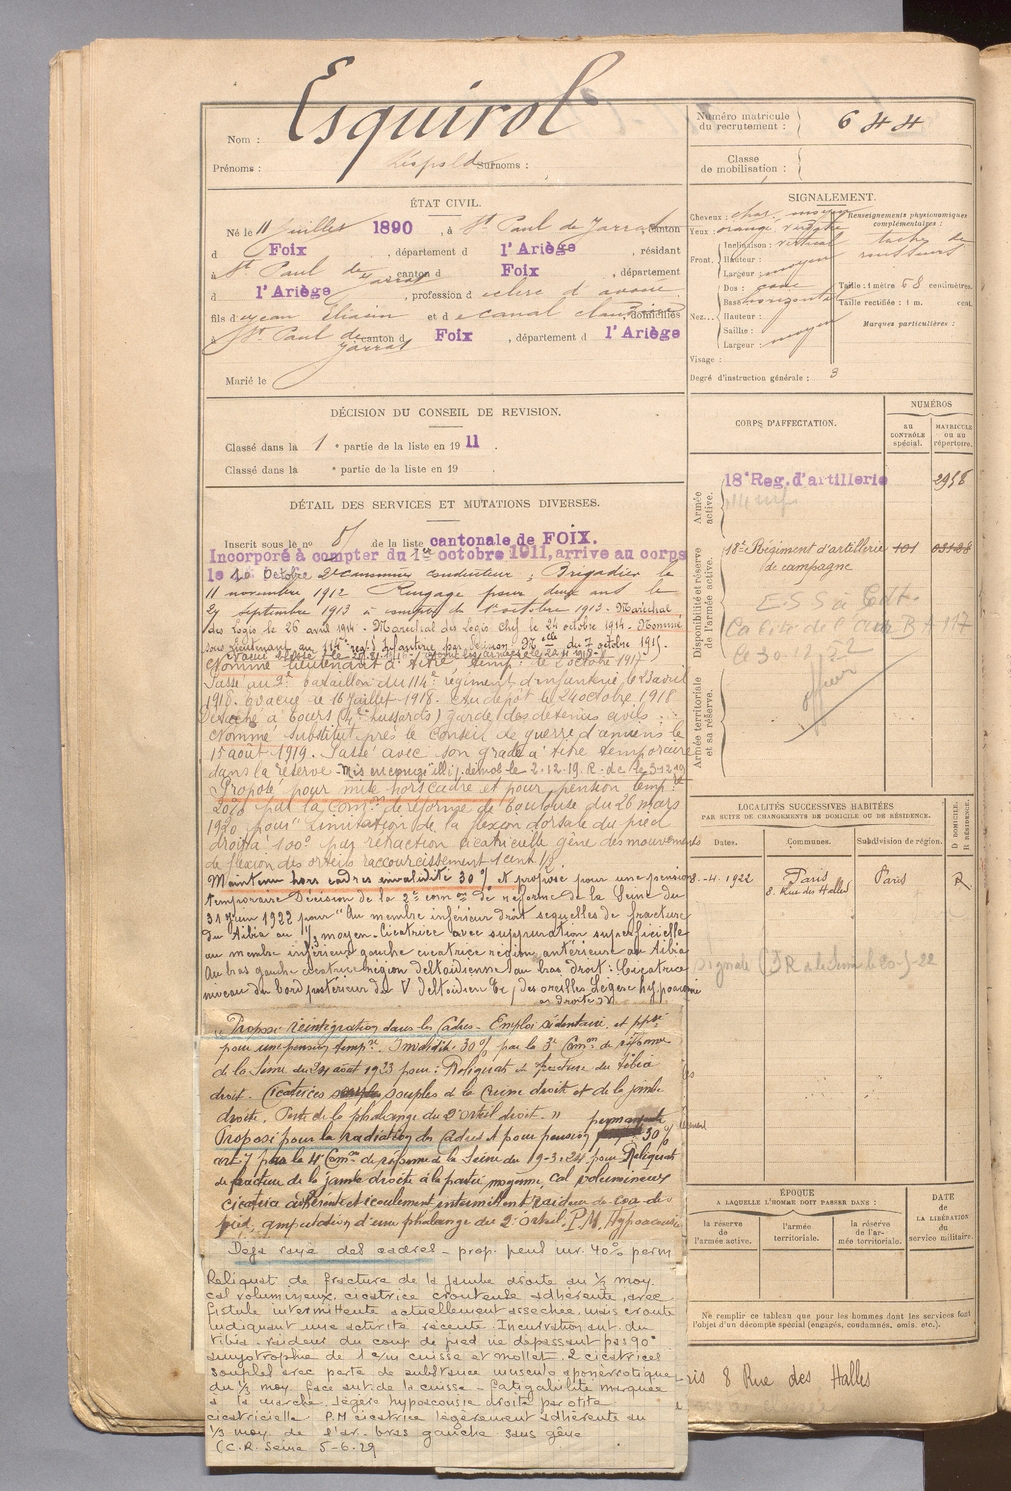 Nom : Esquirol
Prénoms : Léopold Surnoms :
Numéro matricule du recrutement : 644
Classe de mobilisation :
ÉTAT CIVIL.
Né le 11 Juillet 1890, à St Paul de Jarrat canton
d Foix, département d l'Ariège, résidant
à St Paul de Jarrat canton d Foix département
d l'Ariège, profession de clerc d'avoué
fils de Jean et de domiciliés
à St Paul de Jarrat canton d Foix, département d l'Ariège
Marié le
SIGNALEMENT.
Cheveux : moyen
Yeux : orangé
Renseignements physionomiques complémentaires :
taches de rousseurs
Front.
Inclinaison : vertical
Hauteur :
Largeur : moyen
Nez...
Dos :
Base horizontale
Hauteur :
Saillie :
Largeur : moyen
Taille : 1 mètre 68 centimètres.
Taille rectifiée : 1 m. cent.
Marques particulières :
Visage :
Degré d'instruction générale : 3
DÉCISION DU CONSEIL DE REVISION.
Classé dans la 1e partie de la liste en 1911.
Classé dans la e partie de la liste en 19 .
CORPS D'AFFECTATION.
NUMÉROS
AU CONTRÔLE spécial.
MATRICULE OU AU répertoire.
Armée active.
18e Reg. d'artillerie 2958
Disponibilité et réserve de l'armée active.
18e Régiment d'artillerie de campagne 101
le 30.12.22
Armée territoriale et sa réserve.
DÉTAIL DES SERVICES ET MUTATIONS DIVERSES.
Inscrit sous le no de la liste cantonale de FOIX.
Incorporé à compter du 1er octobre 1911, arrive au corps
le 10 Octobre 2e canonnier conducteur ; Brigadier le
11 novembre 1912 Rengagé pour deux ans le
27 septembre 1913 à compter du 1er octobre 1913. Maréchal
des Logis le 26 avril 1914. Maréchal des Logis Chef le 24 octobre 1914. Nommé
sous lieutenant au 114e régt d'Infanterie par du 7 octobre 1915.
Nommé lieutenant à titre temp. le 2 octobre 1917
Passé au 9e bataillon du 114e régiment d'infanterie, le 25 avril
1918. Evacué le 16 Juillet 1918. Au dépôt le 24 octobre 1918
Détaché à Tours ( hussards) garde des détenus civils.
Nommé substitut près le Conseil de guerre d'Amiens le
15 août 1919. Passé avec son grade à titre temporaire
dans la réserve. Mis en congé ill. démob le 2.12.19. R. de le 3.12.19
Proposé pour mise hors cadre et pour pension temp.re
20% par la Comon de réforme de Toulouse du 26 mars
1920 pour "limitation de la flexion dorsale du pied
droit à 100° par rétraction cicatricielle gêne des mouvements
de flexion des orteils raccourcissement 1 cent 1/2.
Maintenu hors cadres invalidité 30% et proposé pour une pension
temporaire Décision de la 2e comon de réforme de la Seine du
31 Juin 1922 pour "Au membre inférieur droit séquelles de fracture
du tibia au 1/3 moyen. Cicatrice avec suppuration superficielle
au membre inférieur gauche cicatrice région antérieure au tibia
Au bras gauche cicatrice région deltoïdienne au bras droit : Cicatrice
niveau du bord postérieur du V deltoïdien des oreilles Légère hypoacousie
à droite
"Proposé réintégration dans les Cadres. Emploi sédentaire et pposé
pour une pension temp.re Invalidité 30% par la 3e Comon de réforme
de la Seine du 31 août 1923 pour : Reliquat de fracture du tibia
droit. Cicatrices souples de la cuisse droite et de la jambe
droite. Perte de la phalange du 2e orteil droit."
Proposé pour la radiation des Cadres et pour pension permanente 30%
par la 4e Comon de réforme de la Seine du 19-3-24 pour Reliquat
de fracture de la jambe droite à la partie moyenne, cal volumineux
cicatrice adhérente et écoulement intermittent raideur du cou-de-
pied. amputation d'une phalange du 2e orteil. P.M. Hypoacousie
Déjà rayé des cadres - prop. pens. inv. 40% perm
Reliquat de fracture de la jambe droite au 1/3 moy.
cal volumineux, cicatrice croûteuse adhérente, avec
fistule intermittente actuellement asséchée, mais croûte
indiquant une activité récente. Incurvation ant. du
tibia. raideur du coup de pied ne dépassant pas 90°
amyotrophie de 1 c/m cuisse et mollet. 2 cicatrices
souples avec perte de substance musculo aponévrotique
du 1/3 moy. face ant. de la cuisse - fatigabilité marquée
à la marche. légère hypoacousie droite par otite
cicatricielle. P.M cicatrice légèrement adhérente au
1/3 moy. de l'av. bras gauche sans gêne
(C.R. Seine 5-6-29
LOCALITÉS SUCCESSIVES HABITÉES
PAR SUITE DE CHANGEMENTS DE DOMICILE OU DE RÉSIDENCE.
Dates. Communes. Subdivision de région. D DOMICILE. R RÉSIDENCE.
8.-4.1922 Paris 8. Rue des Halles Paris R
ÉPOQUE
À LAQUELLE L'HOMME DOIT PASSER DANS :
la réserve de l'armée active.
l'armée territoriale.
la réserve de l'armée territoriale.
DATE DE LA LIBÉRATION du service militaire.
Ne remplir ce tableau que pour les hommes dont les services font
l'objet d'un décompte spécial (engagés, condamnés, omis, etc.).
ris 8 Rue des Halles